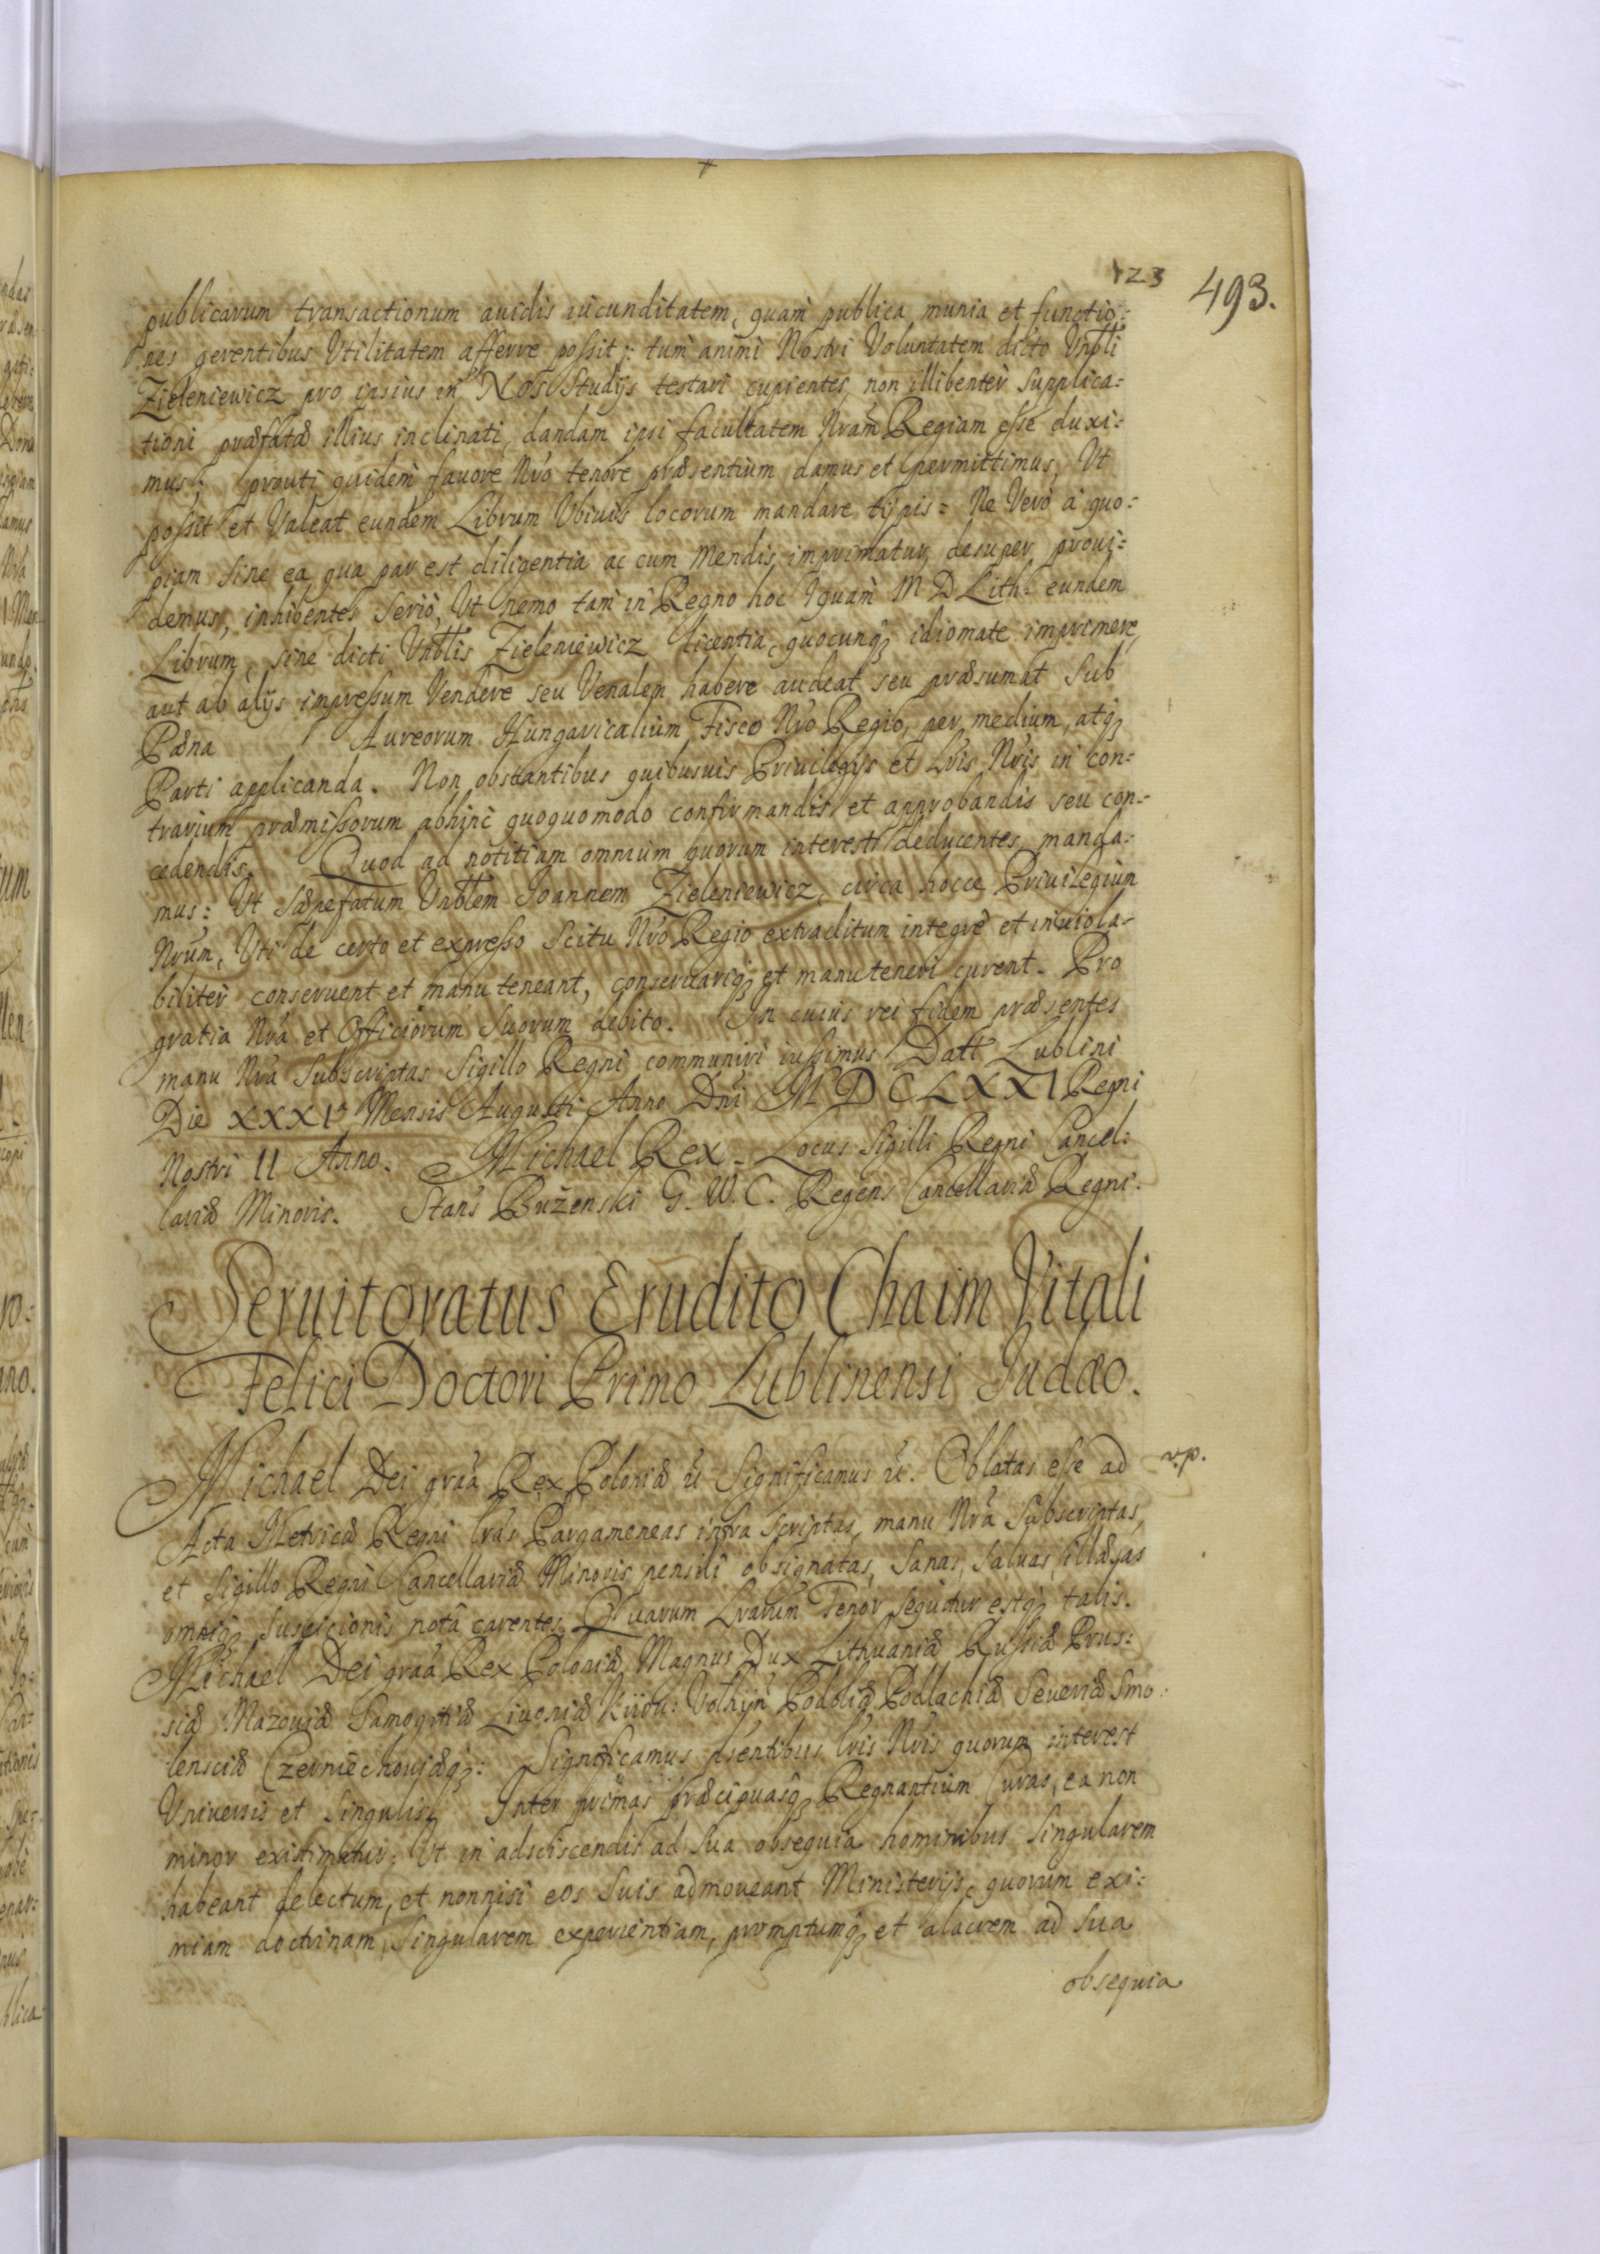 123 493.
publicarum transactionum auidis iucunditatem, quam publica munia et functio:
nes gerentibus Vtilitatem afferre possit: tum animi Nostri Voluntatem dicto Vrbli
Zieleniewicz pro ipsius in Nos Studijs testari cupientes, non illibenter Supplica:
tioni præfatæ illius inclinati, dandam ipsi facultatem Nram Regiam esse duxi:
mus: prouti quidem fauore Nro tenore præsentium damus et permittimus, Vt
possit et Valeat eundem Librum Vbiuis locorum mandare typis: Ne Vero à quo:
piam sine ea qua par est diligentia ac cum mendis imprimatur, desuper proui:
demus, inhibentes Seriò, Vt nemo tam in Regno hoc quàm M D Lith: eundem
Librum, sine dicti Vrblis Zieleniewicz licentia, quocunq; idiomate imprimere,
aut ab alijs impressum Vendere seu Venalem habere audeat seu præsumat Sub
Pæna Aureorum Hungaricalium Fisco Nro Regio, per medium, atq;
Parti applicanda. Non obstantibus quibusuis Priuilegijs et Lris Nris in con:
trarium præmissorum abhinc quoquomodo confirmandis et approbandis seu con:
cedendis. Quod ad notitiam omnium quorum interest deducentes, manda:
mus: Vt sæpefatum Vrblem Joannem Zieleniewicz, circa hocce Priuilegium
Nrum, Vti de certo et expresso Scitu Nro Regio extraditum integrè et inuiola:
biliter conseruent et manuteneant, conseruariq; et manuteneri curent. Pro
gratia Nra et Officiorum Suorum debito. In cuius rei fidem præsentes
manu Nra Subscriptas Sigillo Regni communiri iussimus Datt Lublini
Die XXXI Mensis Augusti Anno Dni M D C LXXI Regni
Nostri II Anno. Michael Rex. Locus Sigilli Regni Cancel:
lariæ Minoris. Stans Bużenski G. W. C. Regens Cancellariæ Regni.
Seruitoratus Erudito Chaim Vitali
Felici Doctori Primo Lublinensi Judæo.
Michael Dei graa Rex Poloniæ &c Significamus &c. Oblatas esse ad v.p.
Acta Metricæ Regni Lras Pargameneas infra scriptas, manu Nra Subscriptas,
et Sigillo Regni Cancellariæ Minoris pensili obsignatas, Sanas, Saluas, illæsas
omniq; Suspicionis notâ carentes. Quarum Lrarum Tenor Sequitur estq; talis.
Michael Dei graa Rex Poloniæ Magnus Dux Lithuaniæ Russiæ Prus:
siæ Mazouiæ Samogitiæ Liuoniæ Kiiou: Volhyn Podoliæ Podlachiæ Seueriæ Smo:
lensciæ Czerniechouiæq;: Significamus psentibus Lris Nris quorum interest
Vniuersis et Singulis. Inter primas præcipuasq; Regnantium Curas, ea non
minor existimatur, Vt in adsciscendis ad Sua obsequia hominibus Singularem
habeant delectum, et nonnisi eos Suis admoueant Ministerijs, quorum exi:
miam doctrinam, Singularem experientiam, promptumq; et alacrem ad Sua
obsequia